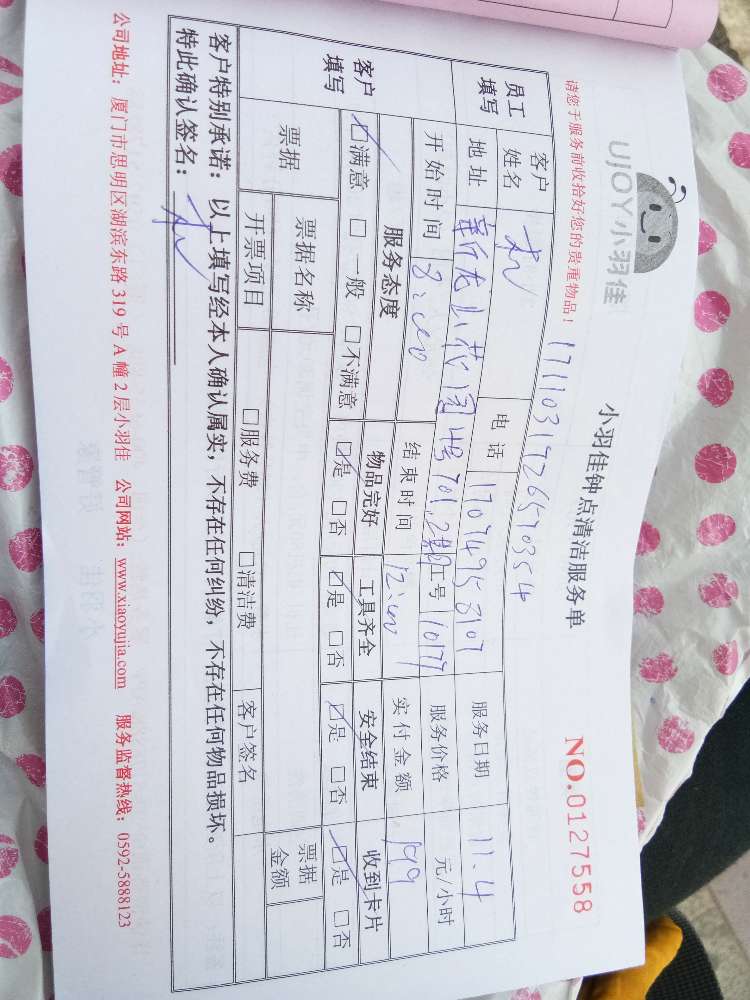 UJOY小羽佳
小羽佳钟点清洁服务单
NO.0127558
请您于服务前收拾好您的贵重物品！
1711031726570354
员工填写 客户姓名 电话 17074953107 服务日期 11.4
地址 工号 10177 服务价格 元/小时
开始时间 8:00 结束时间 12:00 实付金额 199
客户填写 服务态度 物品完好 工具齐全 安全结束 收到卡片
☑满意 □一般 □不满意 ☑是 □否 ☑是 □否 ☑是 □否 ☑是 □否
票据 票据名称 票据金额
开票项目 □服务费 □清洁费 客户签名
客户特别承诺：以上填写经本人确认属实，不存在任何纠纷，不存在任何物品损坏。
特此确认签名：
公司地址：厦门市思明区湖滨东路 319 号 A 幢 2 层小羽佳 公司网站：www.xiaoyujia.com 服务监督热线：0592-5888123